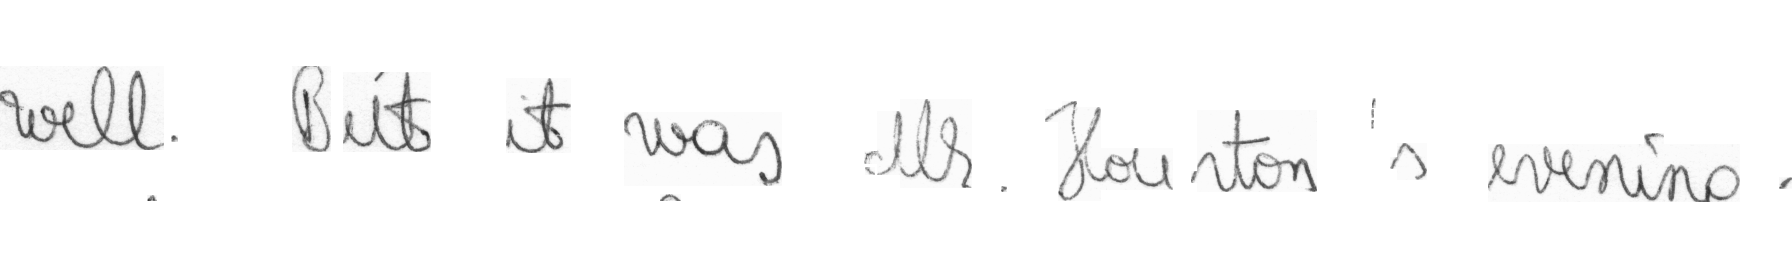 well. But it was Mr. Houston's evening.